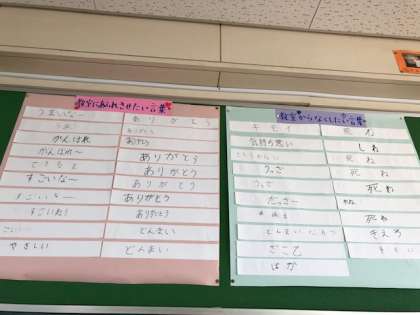 教室にあふれさせたい言葉
うまいなー
がんばれ
がんばれ〜
すごいなー
すごいね!
やさしい
ありがとう
ありがとう
ありがとう
ありがとう
ありがとう
ありがとう
ありがとう
ありがとう
どんまい
どんまい
教室からなくしたい言葉
キモイ
気持ち悪い
うっざ
うっざ
だっさー
ざこて
ばか
死ね
しね
死ね
死ね
死ね
死ね
きえろ